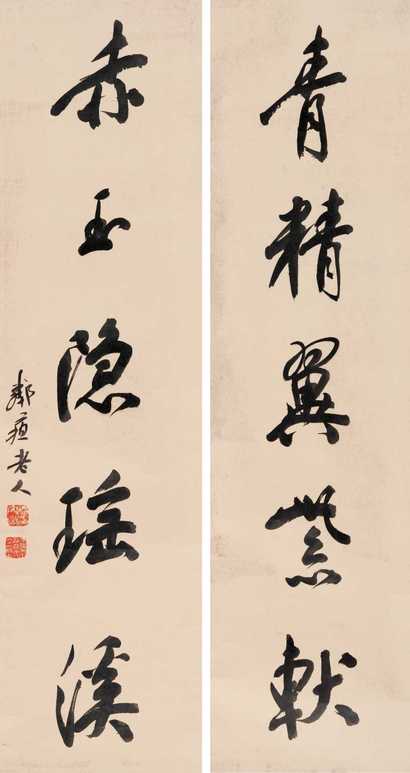 青精翼紫軑
赤玉隐瑶溪
鄰蘇老人